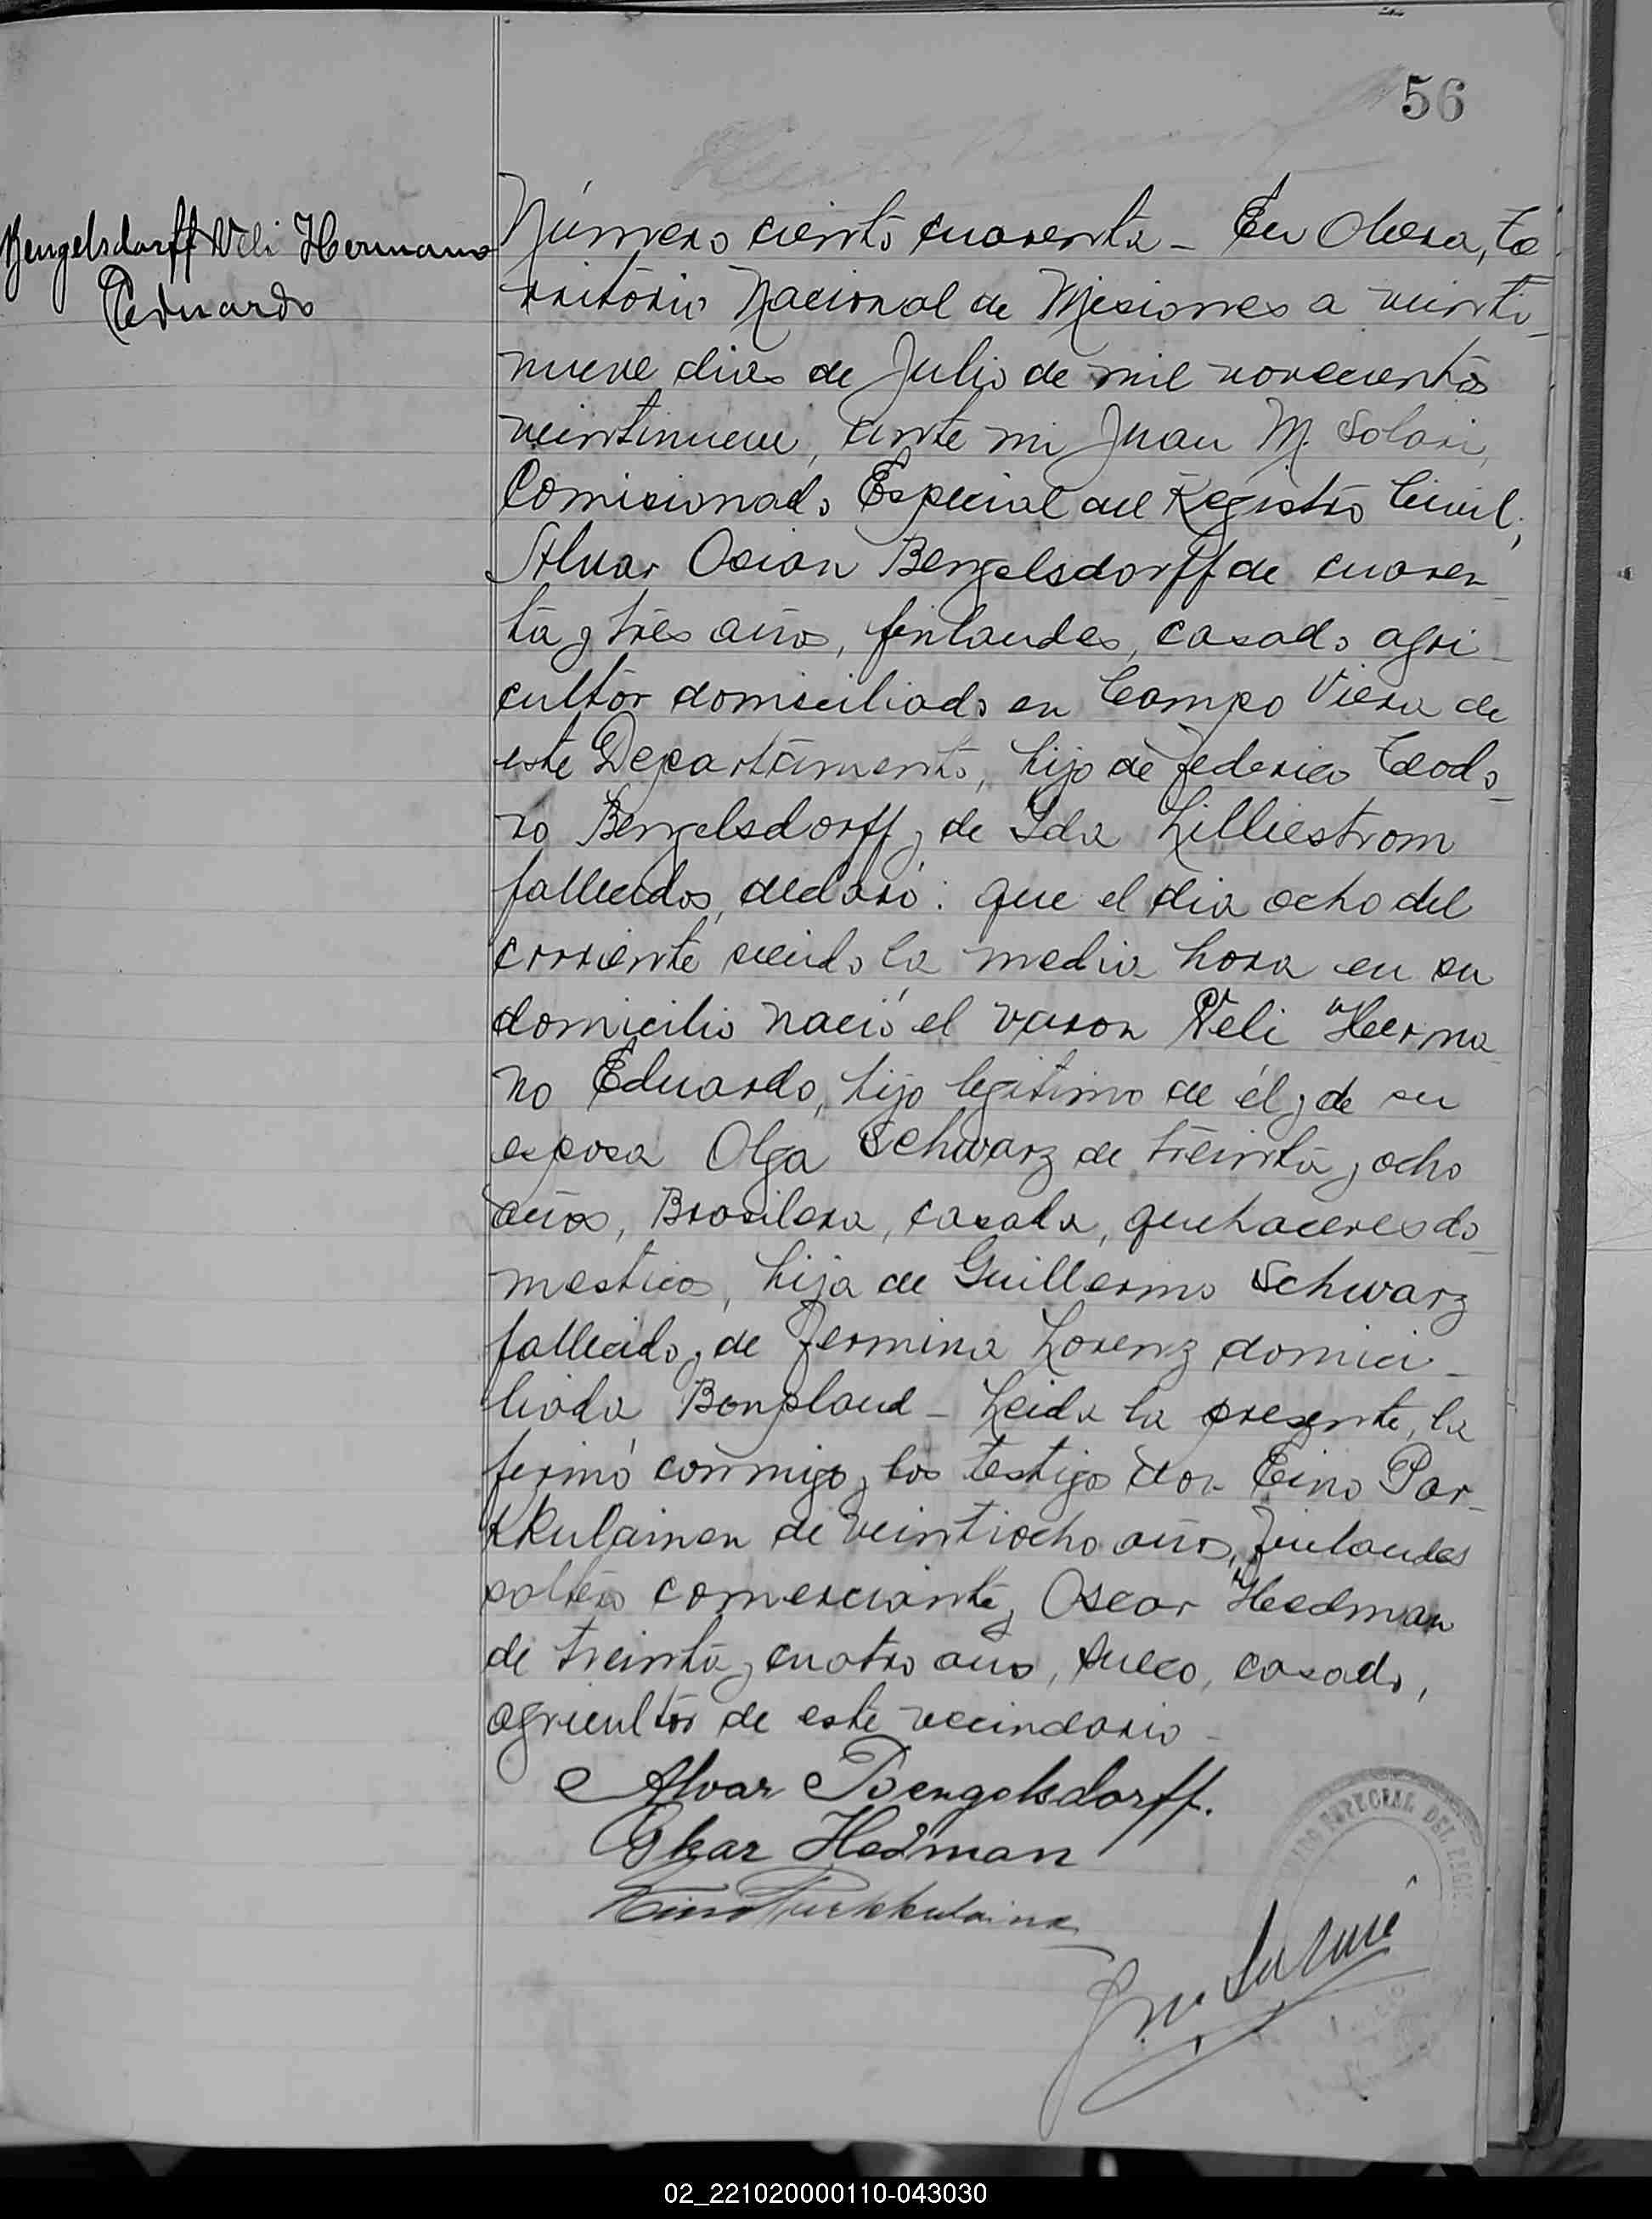 56
Bengelsdorff Veli Hermano
Eduardo
Número ciento cuarenta - En Obera, te
rritorio Nacional de Misiones a veinti-
nueve dias de Julio de mil novecientos
veintinueve, ante mi Juan M. Solari,
Comisionado Especial del Registro Civil,
Alvar Osian Bengelsdorff de cuaren-
ta y tres años, finlandes, casado agri-
cultor domiciliado en Campo Viera de
este Departamento, hijo de Federico Teodo-
ro Bengelsdorff y de Ida Lilliestrom
fallecidos, declaró: que el dia ocho del
corriente siendo la media hora en su
domicilio nació el varon Veli Herma
no Eduardo, hijo legitimo de él y de su
esposa Olga Schwarz de treinta y ocho
años, Brasilera, casada, quehaceres do-
mesticos, hija de Guillermo Schwarz
fallecido y de Fermina Lorenz domici-
liada Bonpland - Leida la presente, la
firmó conmigo y los testigos don Eino Par-
kkulainen de veintiocho años, Finlandes
soltero comerciante y Oscar Hedman
de treinta y cuatro años, sueco, casado,
agricultor de este vecindario -
Alvar Bengelsdorff.
Oskar Hedman
ESPECIAL DEL REGIS
02_221020000110-043030